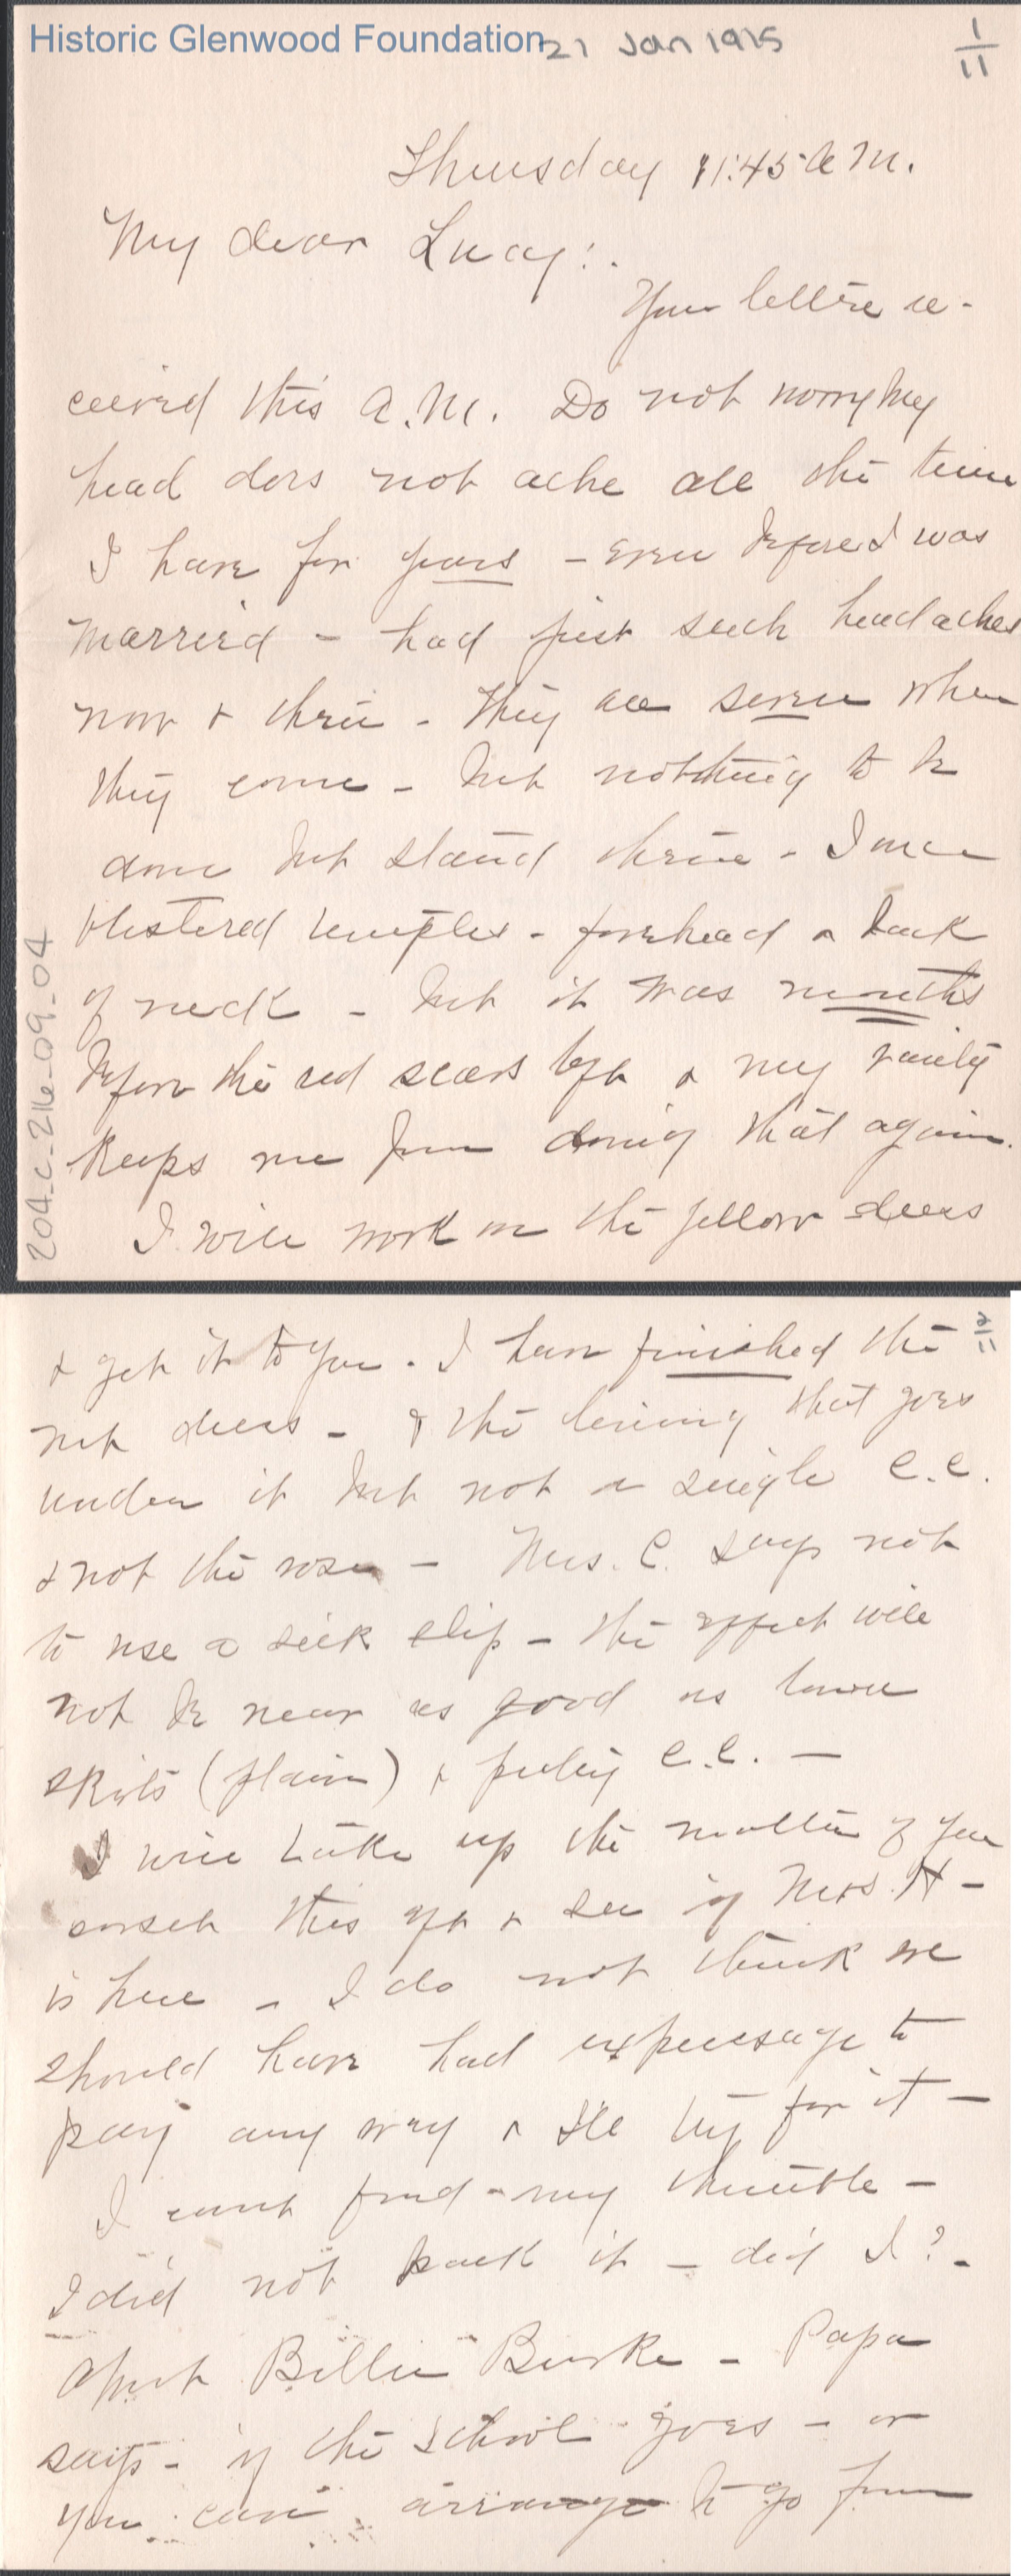 Historic Glenwood Foundation
21 Jan 1915
1/11
Thursday 11:45 A M.
My dear Lucy:.
Your letter re-
ceived this A.M. Do not worry my
head does not ache all the time
I have for years - even before I was
married - had just such headaches
now & then - They are severe when
they come - but nothing to be
done but stand them - I once
blistered temples - forehead & back
of neck - but it was months
before the red scars left & my vanity
keeps me from doing that again.
I will work on the yellow dress
204_c_216_09_04
2/11
& get it to you. I have finished the
net dress - & the lining that goes
under it but not a single C.C.
& not the rose - Mrs. C. says not
to use a silk slip - the effect will
not be near as good as lawn
skirts (plain) & frilly C.C. -
I will take up the matter of your
corset this aft & see if Mrs. H -
is here - I do not think we
should have had expressage to
pay any way & I'll try for it -
I cant find my thimble -
I did not pack it - did I? -
About Billie Burke - Papa
says - if the school goes - or
you can arrange to go from